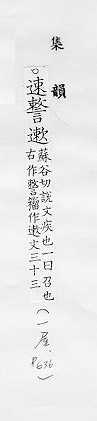 集韻
○速𧫷遬蘇谷切說文疾也一曰召也
古作𧫷籀作遬文三十三
(一屋、P.636)